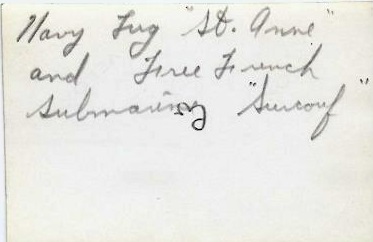 Navy Tug "St. Anne"
and Free French
submarine "Surcouf"